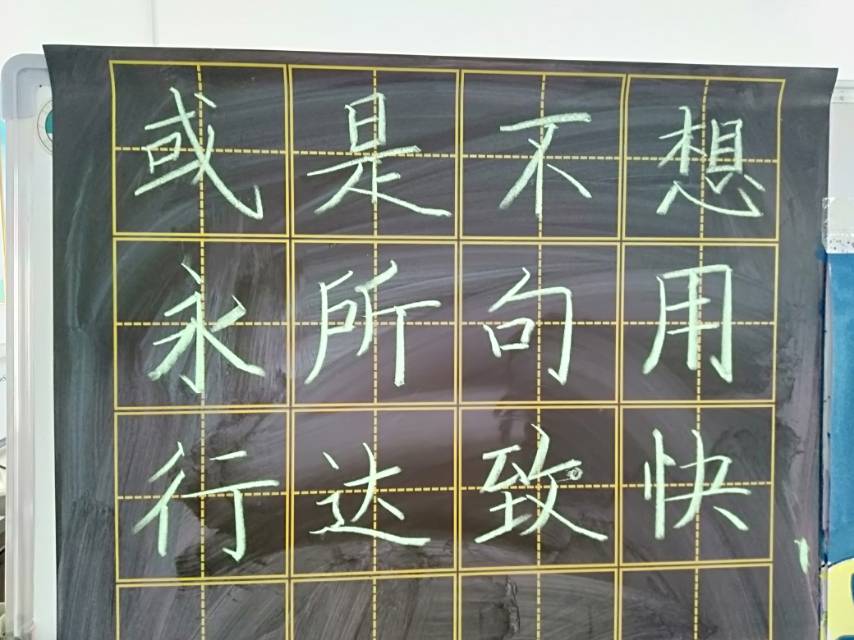 或是不想
永所句用
行达致快